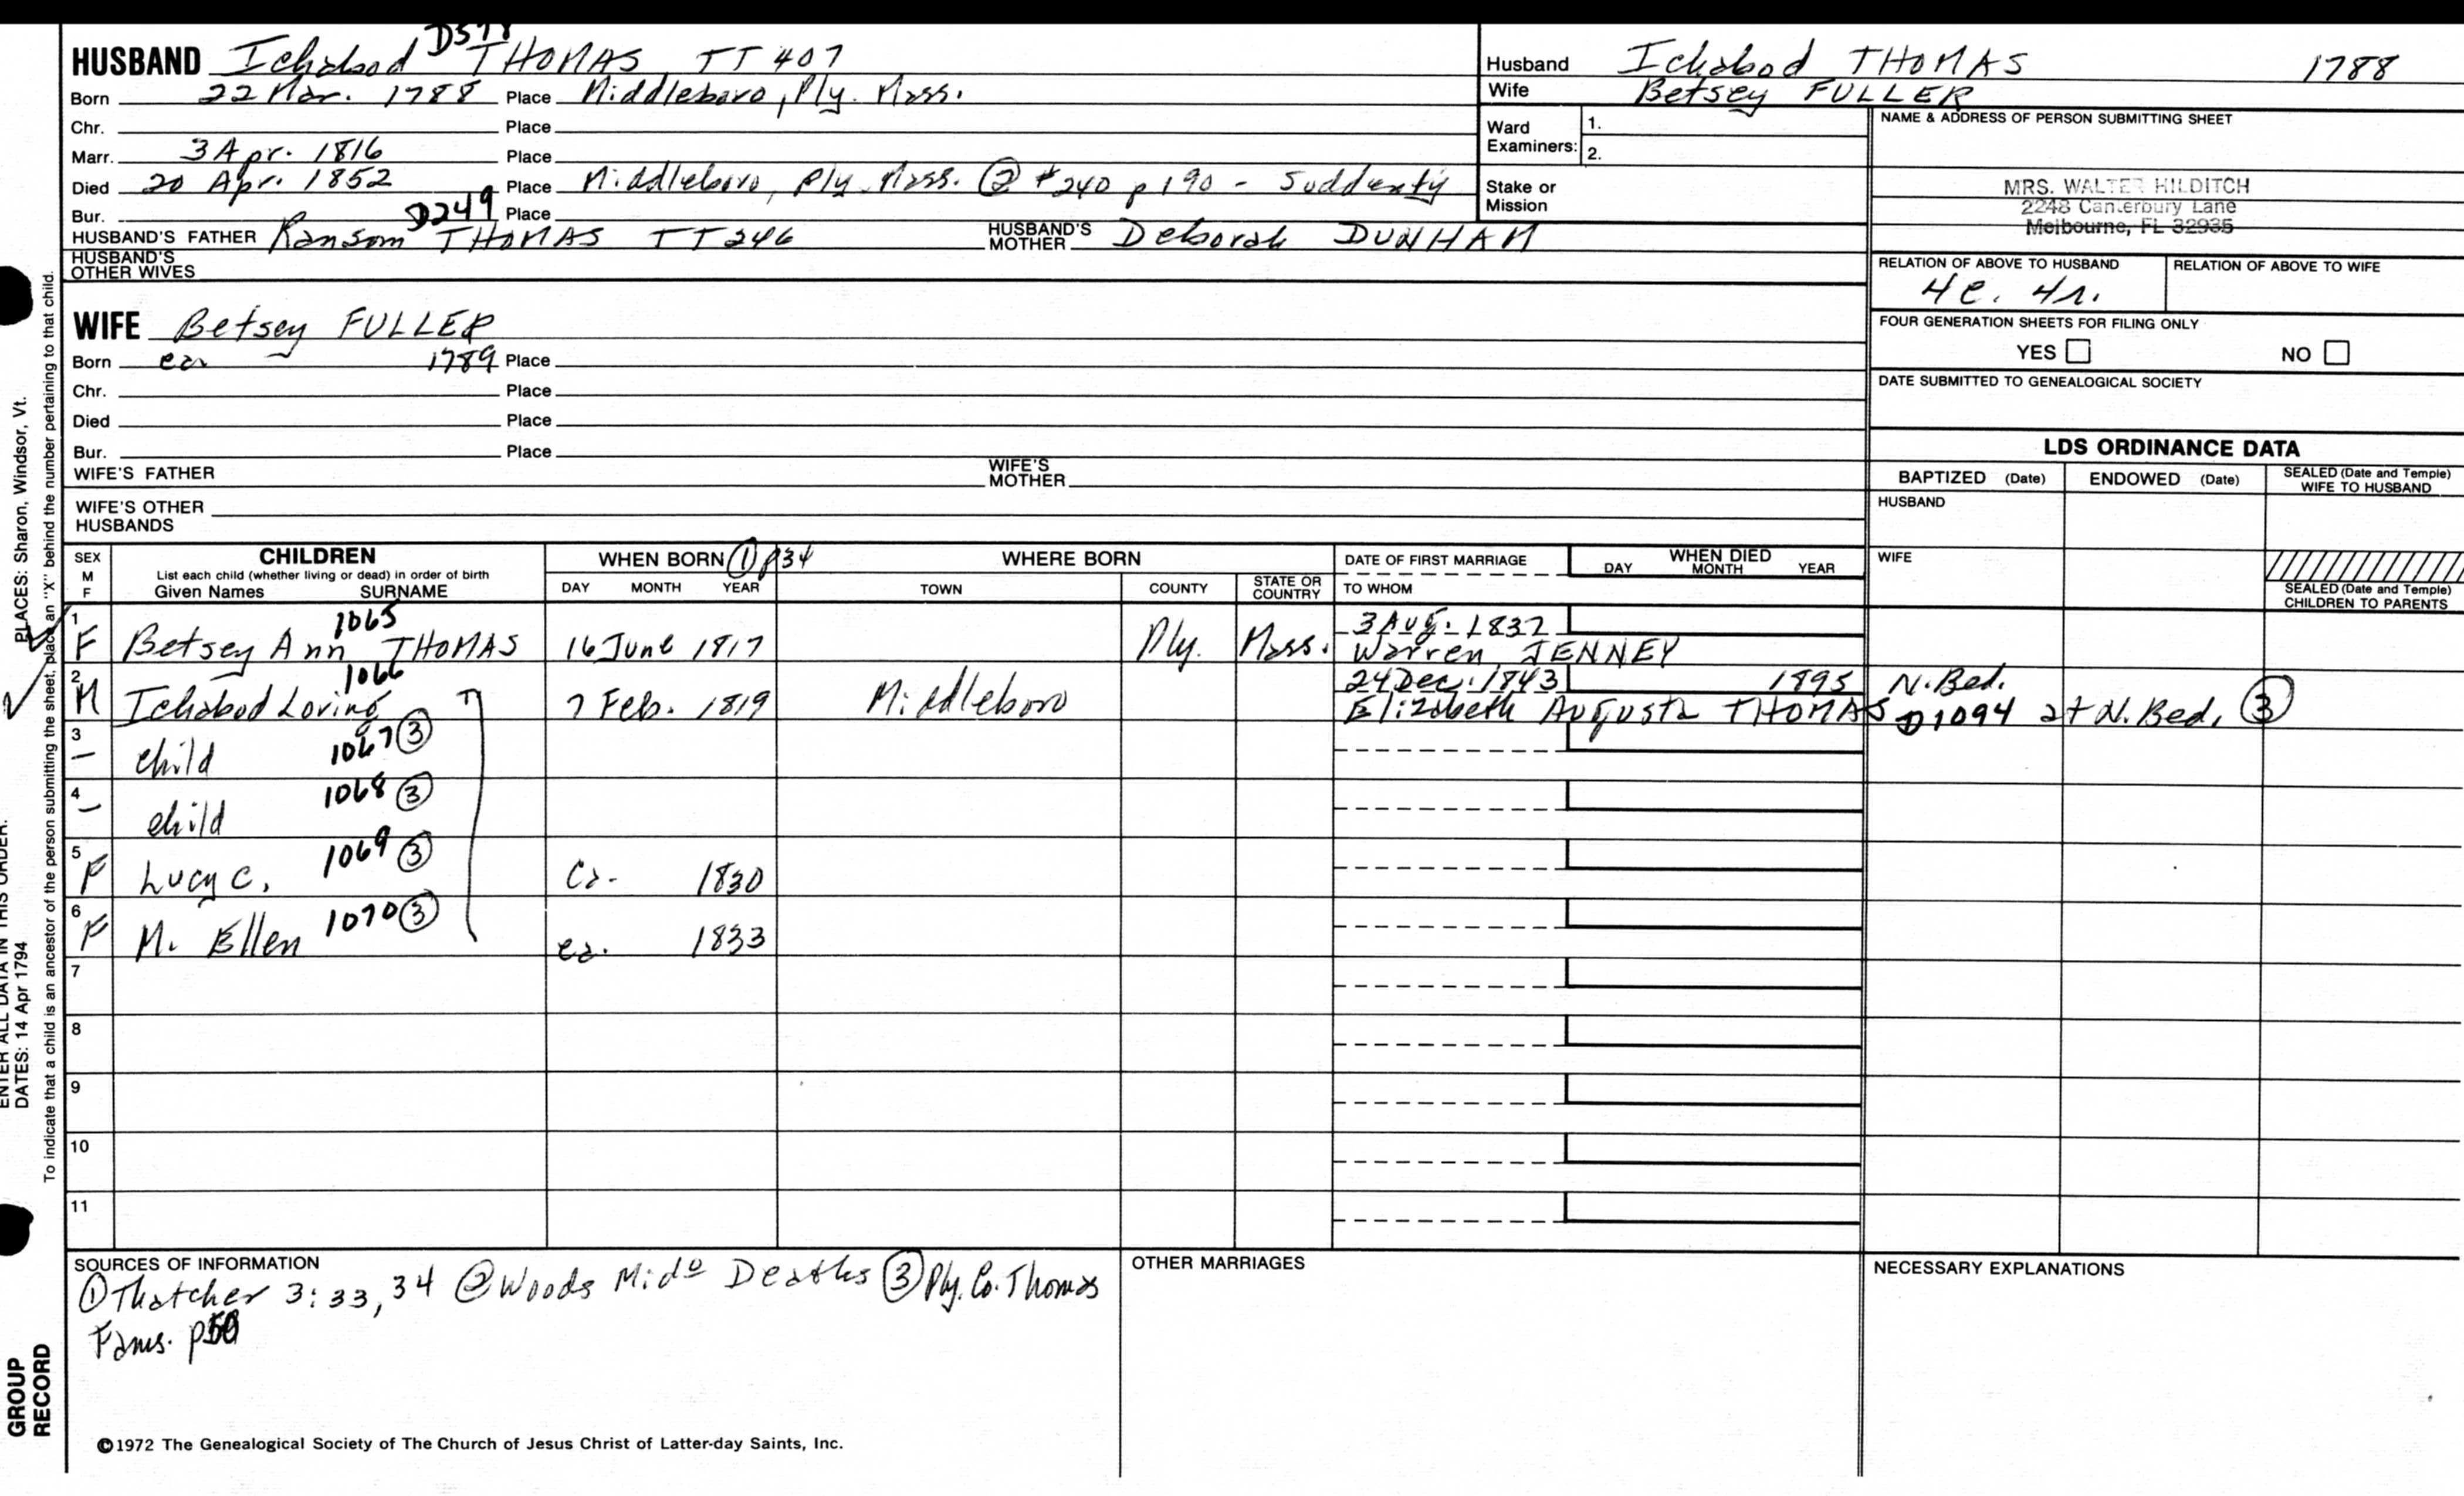 HUSBAND Ichabod D578 THOMAS TT 407
Born 22 Mar. 1788 Place Middleboro, Ply. Mass.
Chr. Place
Marr. 3 Apr. 1816 Place
Died 20 Apr. 1852 Place Middleboro, Ply. Mass. ② #240 p 190 - Suddenly
Bur. Place
HUSBAND'S FATHER Ransom D249 THOMAS TT 246 HUSBAND'S MOTHER Deborah DUNHAM
HUSBAND'S OTHER WIVES
Husband Ichabod THOMAS 1788
Wife Betsey FULLER
Ward Examiners: 1.
2.
Stake or Mission
NAME & ADDRESS OF PERSON SUBMITTING SHEET
MRS. WALTER HILDITCH
2248 Canterbury Lane
Melbourne, FL 32935
RELATION OF ABOVE TO HUSBAND RELATION OF ABOVE TO WIFE
4c. 4r.
FOUR GENERATION SHEETS FOR FILING ONLY
YES NO
DATE SUBMITTED TO GENEALOGICAL SOCIETY
WIFE Betsey FULLER
Born ca 1789 Place
Chr. Place
Died Place
Bur. Place
WIFE'S FATHER WIFE'S MOTHER
WIFE'S OTHER HUSBANDS
LDS ORDINANCE DATA
BAPTIZED (Date) ENDOWED (Date) SEALED (Date and Temple) WIFE TO HUSBAND
HUSBAND
WIFE
SEALED (Date and Temple) CHILDREN TO PARENTS
SEX M F CHILDREN WHEN BORN ① p34 WHERE BORN DATE OF FIRST MARRIAGE WHEN DIED
List each child (whether living or dead) in order of birth
Given Names SURNAME DAY MONTH YEAR TOWN COUNTY STATE OR COUNTRY TO WHOM DAY MONTH YEAR
1 F Betsey Ann 1065 THOMAS 16 June 1817 Ply. Mass. 3 Aug. 1837
Warren JENNEY
2 M Ichabod Loring 1066 7 Feb. 1819 Middleboro 24 Dec. 1843 1895 N. Bed.
Elizabeth Augusta THOMAS D1094 at N. Bed. ③
3 – child 1067 ③
4 – child 1068 ③
5 F Lucy C. 1069 ③ Ca. 1830
6 F M. Ellen 1070 ③ ca. 1833
7
8
9
10
11
SOURCES OF INFORMATION
① Thatcher 3:33,34 ② Woods Mido Deaths ③ Ply. Co. Thomas
Fams. p50
OTHER MARRIAGES
NECESSARY EXPLANATIONS
©1972 The Genealogical Society of The Church of Jesus Christ of Latter-day Saints, Inc.
To indicate that a child is an ancestor of the person submitting the sheet, place an "X" behind the number pertaining to that child.
PLACES: Sharon, Windsor, Vt.
ENTER ALL DATA IN THIS ORDER:
DATES: 14 Apr 1794
GROUP
RECORD